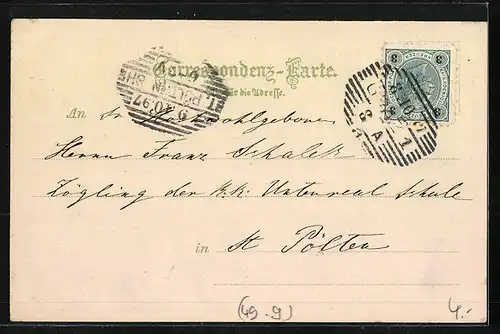 Correspondenz-Karte.
Für die Adresse.
3 3
3 3
ST. PÖLTEN
9.10.97
An Sr. Wohlgeboren
Herrn Franz Schalek
Zögling der k.k. Unterreal Schule
in St Pölten
(49-9) 4.-